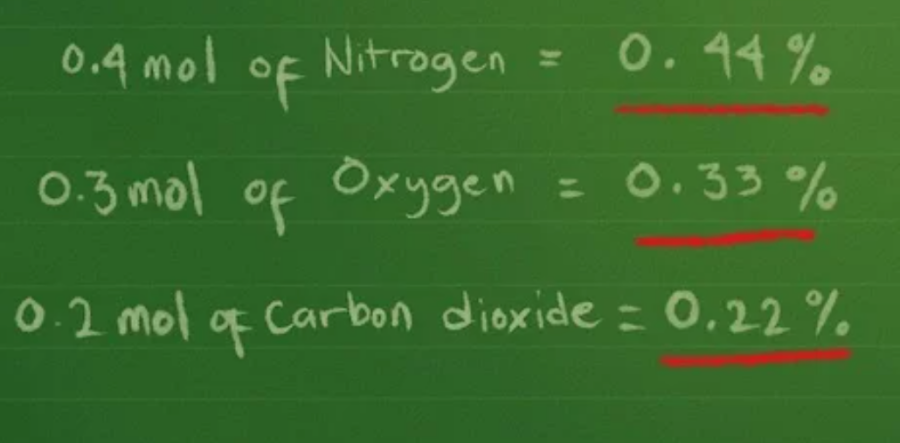 0.4 mol of Nitrogen = 0.44%
0.3 mol of Oxygen = 0.33%
0.2 mol of Carbon dioxide = 0.22%